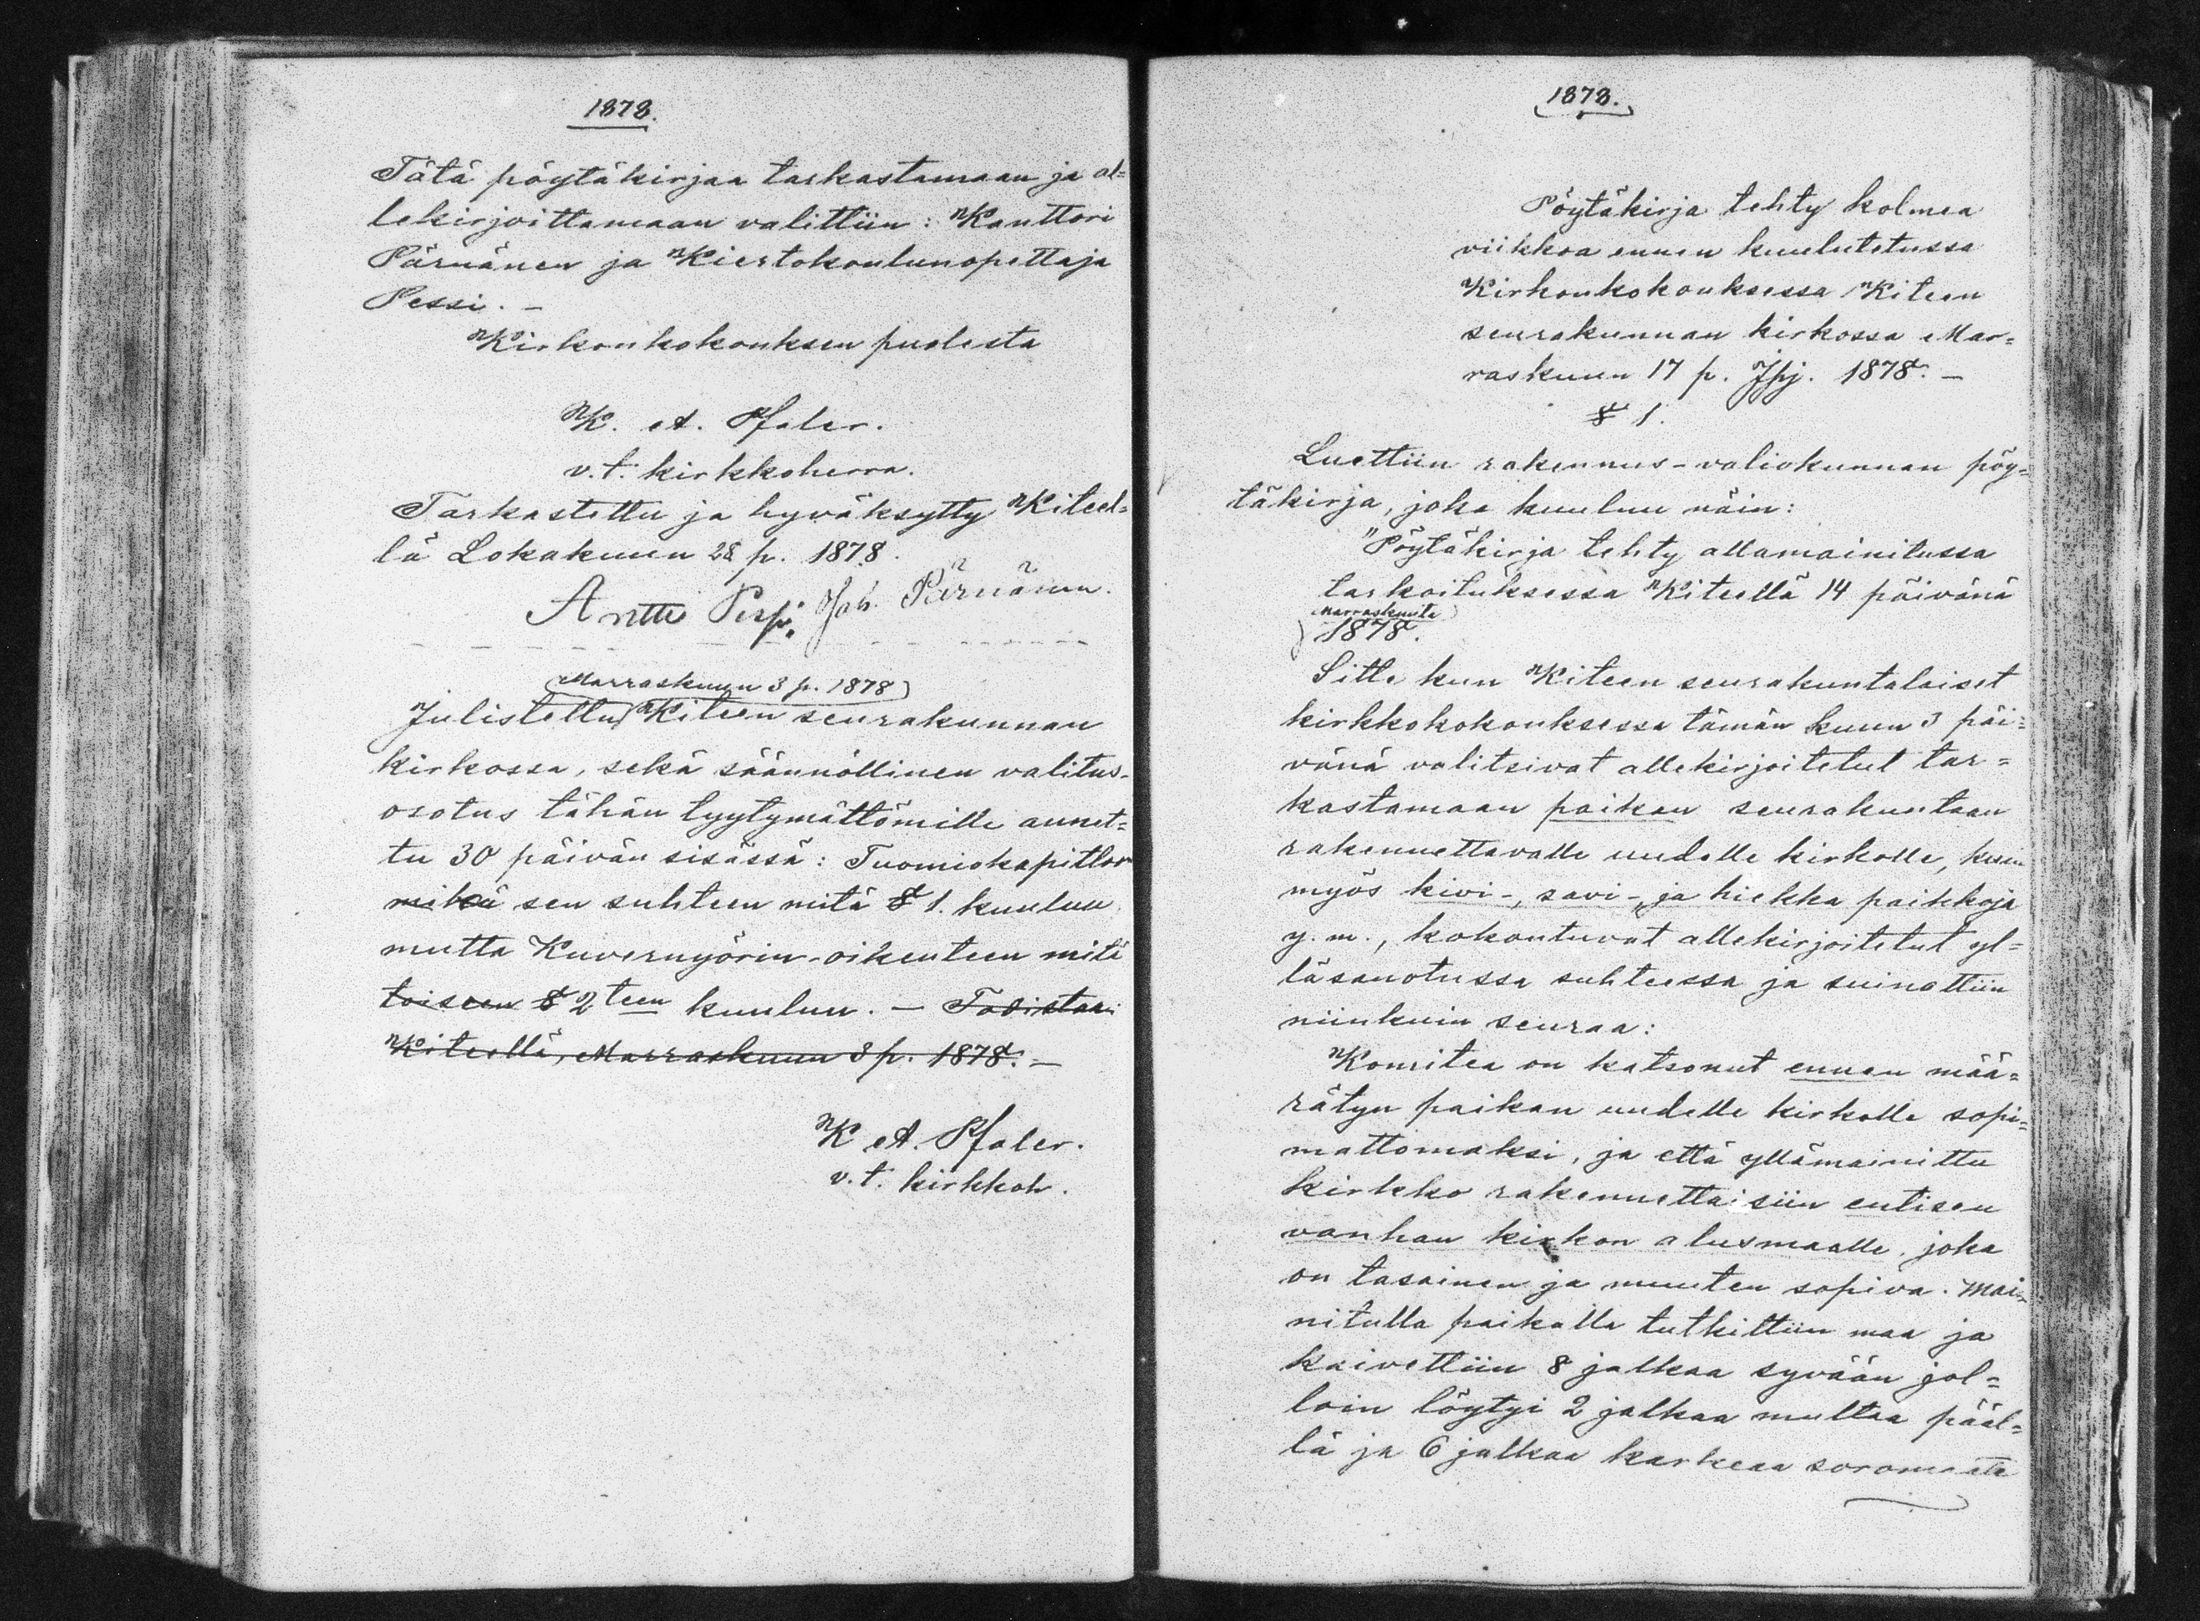 1878.
Tätä pöytäkirjaa tarkastamaan ja al=
lekirjoittamaan valittiin: Kanttori
Pärnänen ja Kiertokoulunopettaja
Pessi. –
Kirkonkokouksen puolesta
K. A. Pfaler.
v.t. kirkkoherra.
Tarkastettu ja hyväksytty Kiteel=
lä Lokakuun 28 p. 1878.
Antti Joh. Pärnänen.
Marraskuun 3 p. 1878
Julistettu Kiteen seurakunnan
kirkossa, sekä säännöllinen valitus-
osotus tähän tyytymättömille annet=
tu 30 päivän sisässä: Tuomiokapitlor
mikä sen suhteen mitä § 1. kuuluu
mutta Kuvernyörin-oikeuteen mitä
toiseen § 2teen kuuluu. – Todistaa:
Kiteellä, Marraskuun 3 p. 1878. –
K A. Pfaler.
v.t. kirkkoh.
1878.
Pöytäkirja tehty kolmea
viikkoa ennen kuulutetussa
Kirkonkokouksessa Kiteen
seurakunnan kirkossa Mar=
raskuun 17 p. 1878. –
§ 1.
Luettiin rakennus-valiokunnan pöy=
täkirja, joka kuuluu näin:
"Pöytäkirja tehty allamainitussa
tarkoituksessa Kiteellä 14 päivänä
Marraskuuta
1878.
Sitte kun Kiteen seurakuntalaiset
kirkkokokouksessa tämän kuun 3 päi=
vänä valitsivat allekirjoitetut tar=
kastamaan paikan seurakuntaan
rakennettavalle uudelle kirkolle, kuin
myös kivi-, savi-, ja hiekka paikkoja
y.m., kokontuvat allekirjoitetut yl=
läsanotussa suhteessa ja suinattiin
niinkuin seuraa:
Komitea on katsonut ennen mää=
rätyn paikan uudelle kirkolle sopi=
mattomaksi, ja että yllämainittu
kirkko rakennettaisiin entisen
vanhan kirkon alusmaalle, joka
on tasainen ja muuten sopiva. Mai-
nitulla paikalla tutkittiin maa ja
kaivettiin 8 jalkaa syvään jol=
loin löytyi 2 jalkaa multaa pääl=
lä ja 6 jalkaa karkeaa soromaata